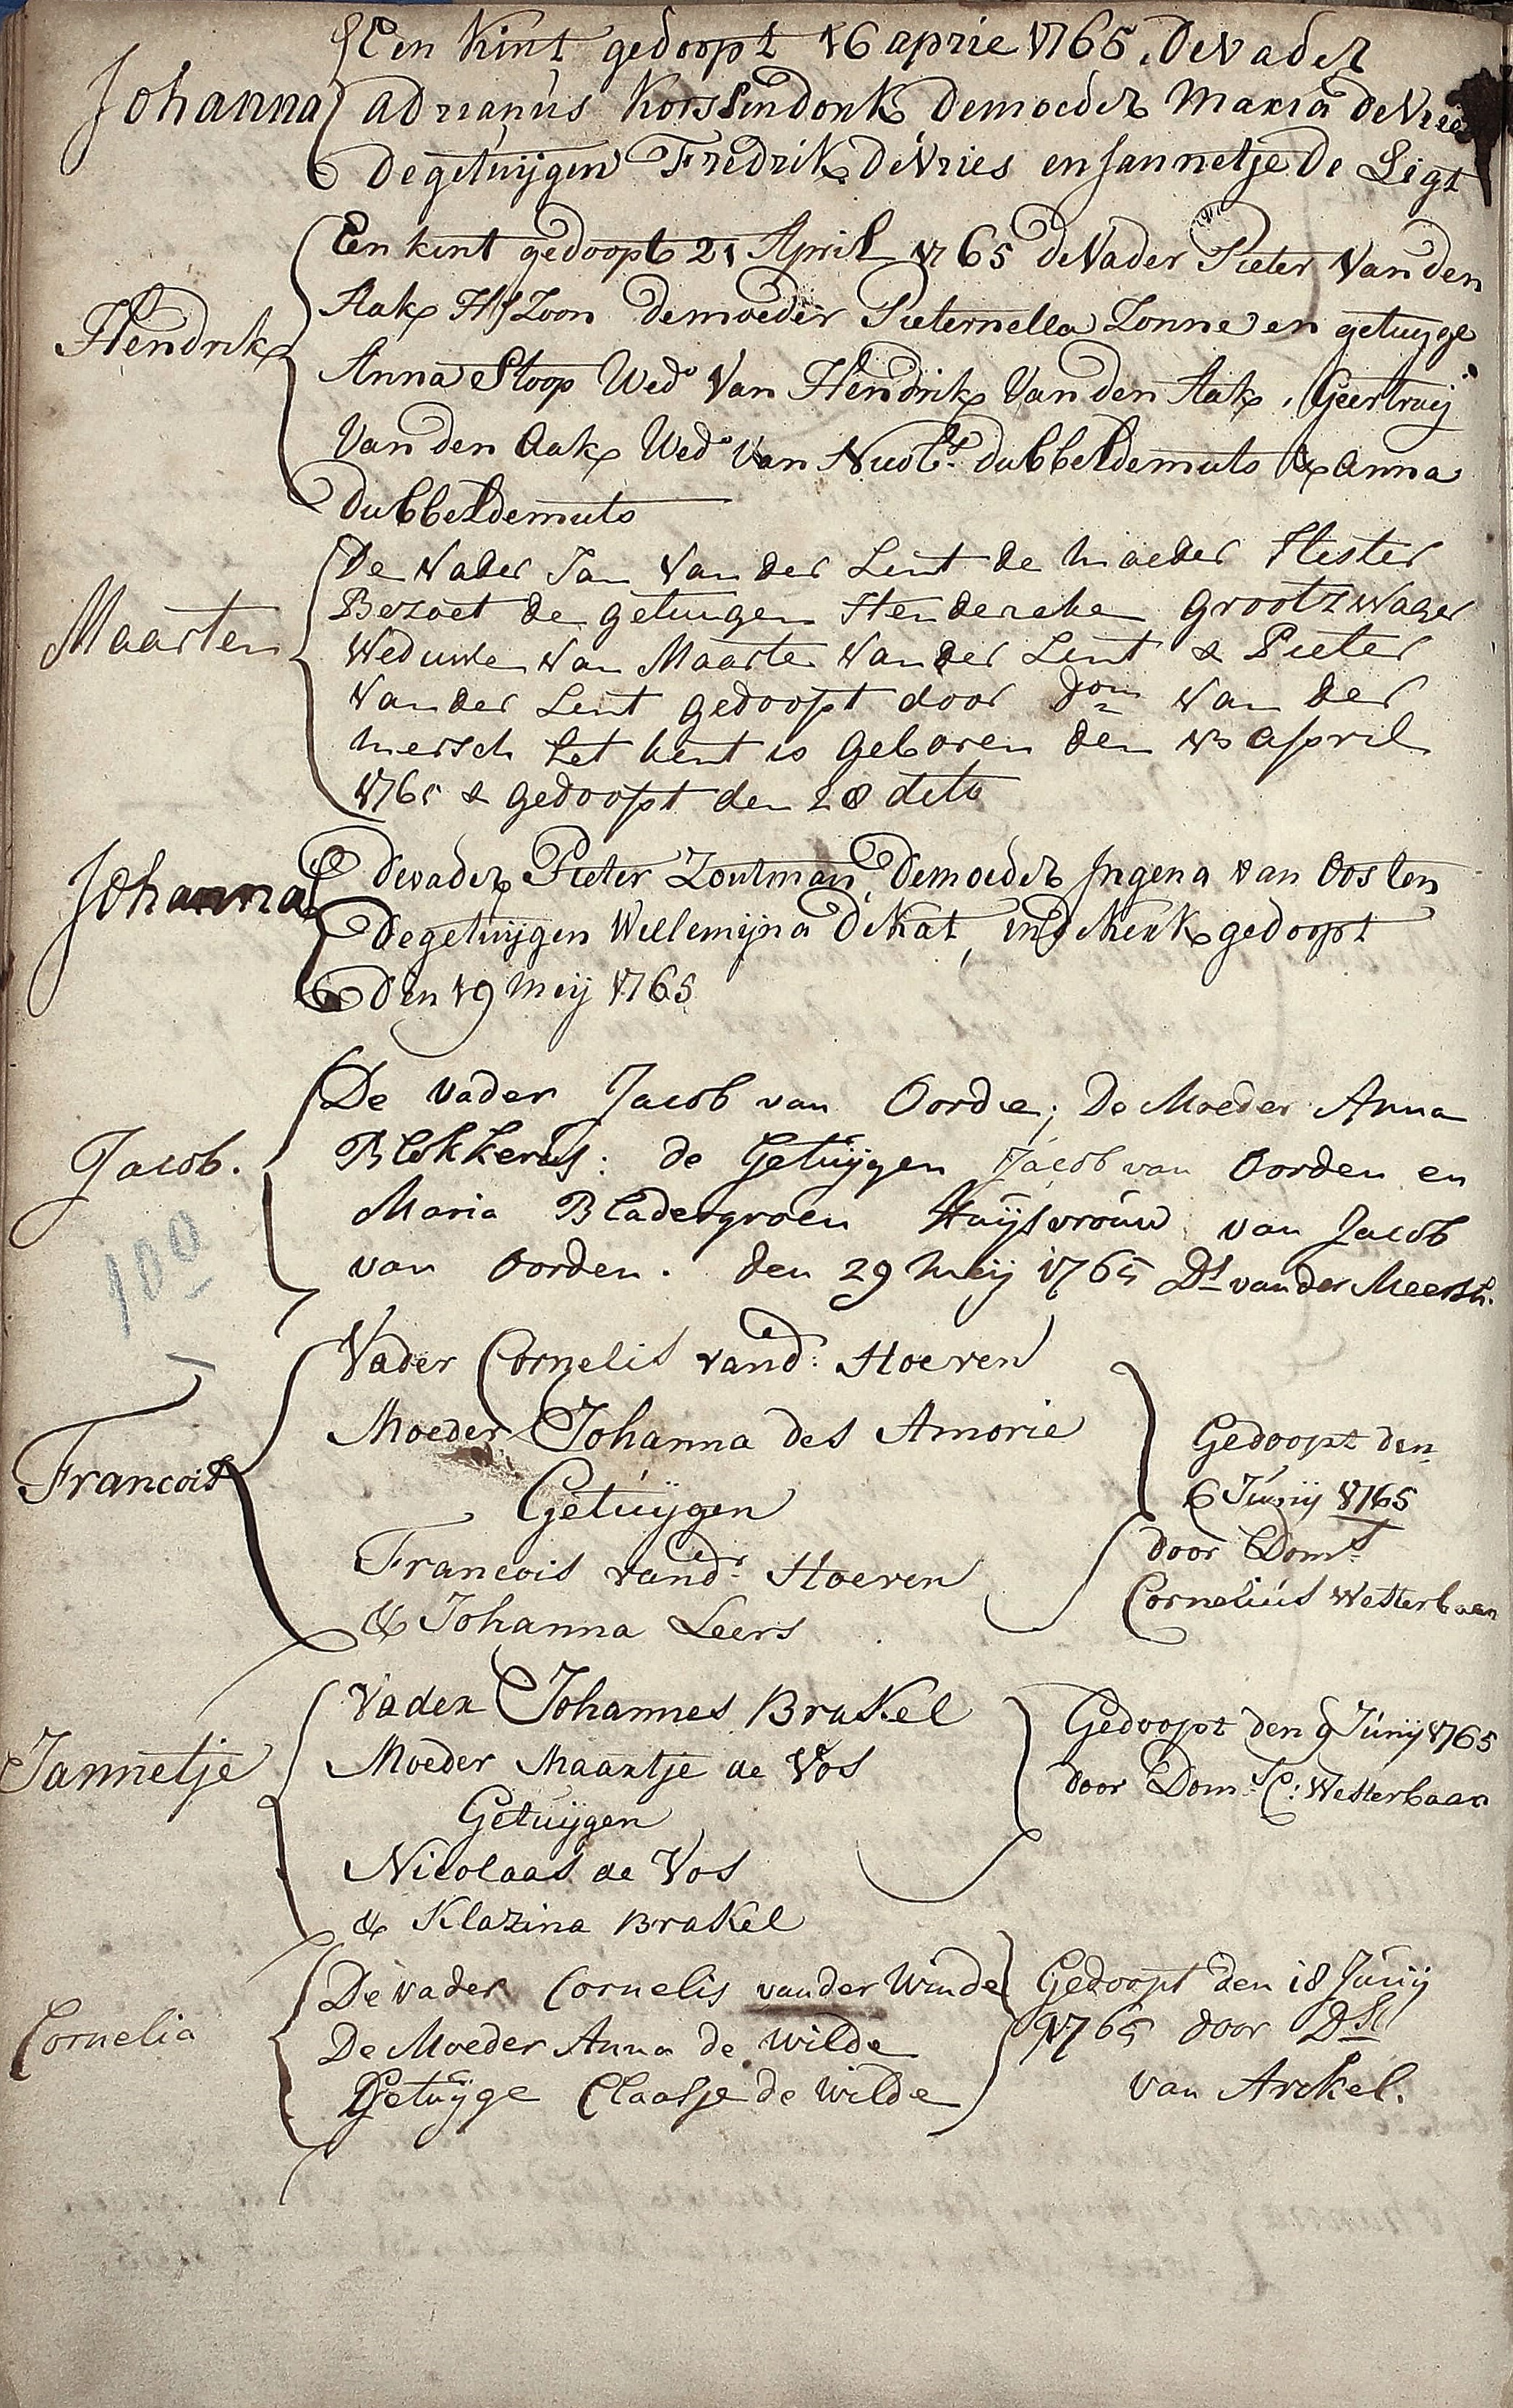 Johanna
Een kint gedoopt 16 aprie 1765. de vader
adrianus Korssendonk de moeder Maria de Vries
de getuijgen Fredrik de Vries en Jannetje De Ligt
Hendrik
Een kint gedoopt 21 April 1765 de Vader Pieter Van den
Aak HsZoon de moeder Pieternella Zonne en getuyge
Anna Stoop Wedᵉ Van Hendrik Van den Aak, Geertruij
Van den Aak Wedᵉ Van dubbeldemuts & anna
dubbeldemuts
Maarten
De Vader Jan Van der Lint de moeder Hester
Bezoet de getuigen Hendereke Grootzwager
Weduwe Van Maarte Van der Lint & Pieter
Van der Lint gedoopt door Dom Van der
mersch het kint is Geboren den april
1765 & Gedoopt den 28 dito
Johanna
de vader Pieter Zoutman, de moeder Ingena van Oosten
de getuijgen Willemijna de Kat, in de Kerk gedoopt
den 19 meij 1765
Jacob.
De vader Jacob van Oorde; De Moeder Anna
: de Getuijgen Jacob van Oorden en
Maria Bladergroen Huijsvrouw van Jacob
van Oorden. den 29 Meij 1765 Ds van der Meersch.
100
Francois
Vader Cornelis vand: Hoeven
Moeder Johanna des Amorie
Getuijgen
Francois vandr Hoeven
& Johanna Leers
Gedoopt den
6 Junij 1765
door Doms
Cornelius Westerbaan
Jannetje
Vader Johannes Brakel
Moeder Maartje de Vos
Getuijgen
Nicolaas de Vos
& Klazina Brakel
Gedoopt den 9 Junij 1765
door Doms C: Westerbaan
Cornelia
De vader Cornelis van der Winde
De Moeder Anna de Wilde
Getuijge Claasje de Wilde
Gedoopt den 18 Junij
1765 door Ds
van Arckel.